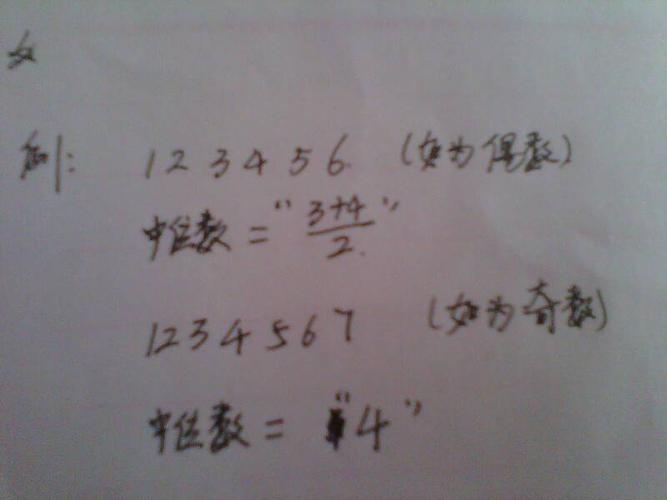 例: 1 2 3 4 5 6. (如为偶数)
中位数 = “ 3+4 / 2. ”
1 2 3 4 5 6 7 (如为奇数)
中位数 = “4”